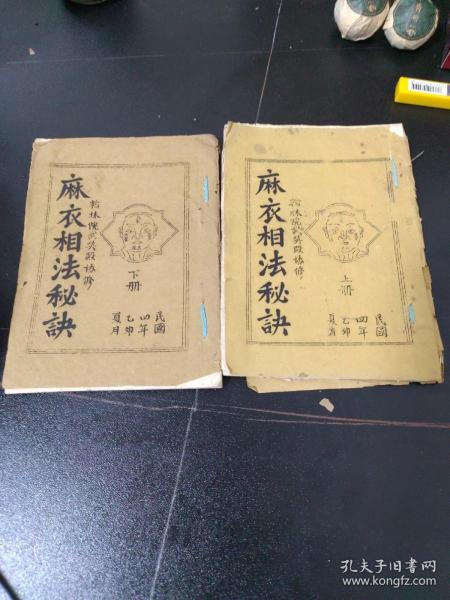 麻衣相法秘訣
翰林院武英殿協修
下册
民國
四年
乙卯
夏月
麻衣相法秘訣
翰林院武英殿協修
上册
民國
四年
乙卯
夏月
孔夫子旧书网
www.kongfz.com